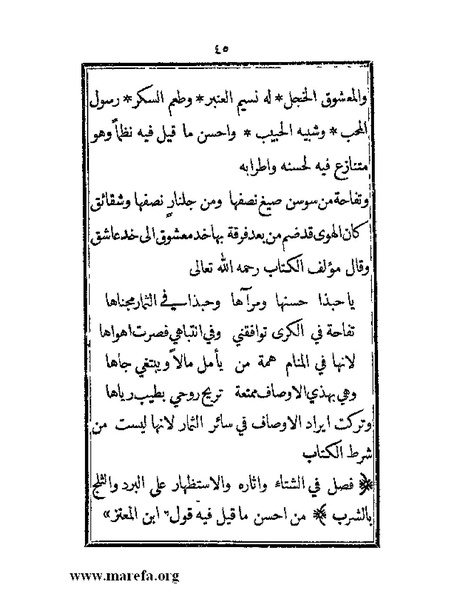 ٤٥
والمعشوق الخجل * له نسيم العنبر * وطعم السكر * رسول
المحب * وشبيه الحبيب * واحسن ما قيل فيه نظماً وهو
متنازع فيه لحسنه واطرابه
وتفاحة من سوسن صيغ نصفها ومن جلنار نصفها وشقائق
كان الهوى قد ضم من بعد فرقة بها خد معشوق الى خد عاشق
وقال مؤلف الكتاب رحمه الله تعالى
يا حبذا حسنها ومرآها وحبذا في الثمار مجناها
تفاحة في الكرى توافقني وفي انتباهي فصرت اهواها
لانها في المنام همة من يأمل مالاً ويبتغي جاها
وهي بهذي الاوصاف ممتعة تريح روحي بطيب رياها
وتركت ايراد الاوصاف في سائر الثمار لانها ليست من
شرط الكتاب
﴿ فصل في الشتاء واثاره والاستظهار على البرد والثلج
بالشرب ﴾ من احسن ما قيل فيه قول " ابن المعتز »
www.marefa.org